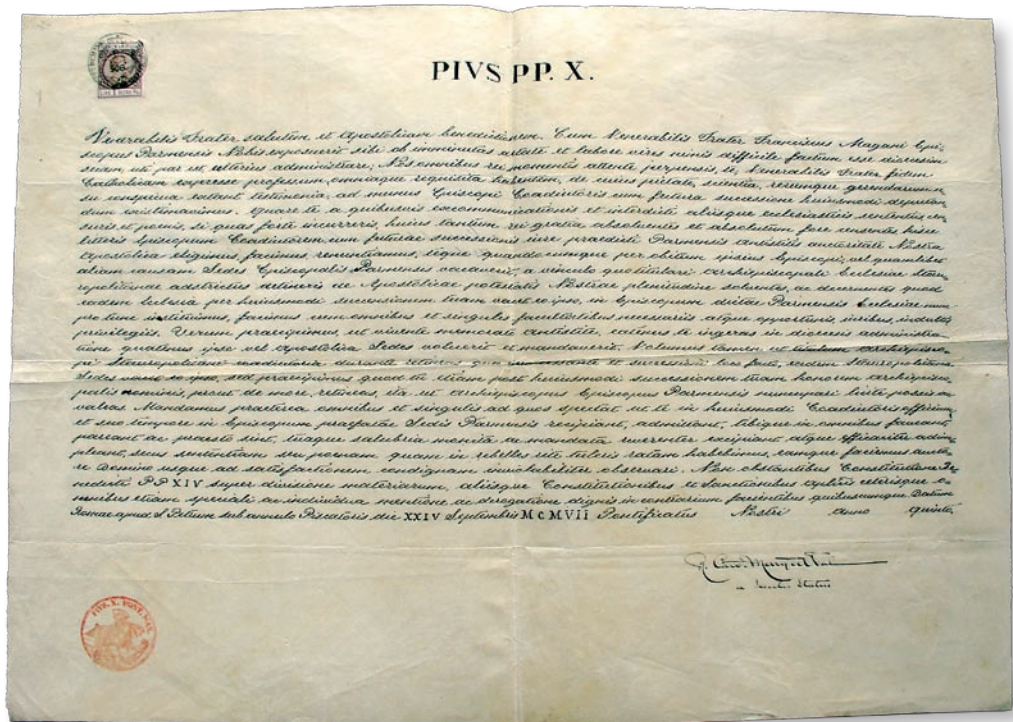 PIVS PP. X.
Venerabilis Frater salutem et Apostolicam benedictionem. Cum Venerabilis Frater Franciscus Magani Epi-
scopus Parmensis Nobis exposuerit sibi ob imminutas aetate et labore vires nimis difficile factum esse dioecesim
suam uti par est ulterius administrare; Nos omnibus rei momentis attente perpensis, te, Venerabilis Frater fidem
Catholicam expresse professum, omniaque requisita habentem, de cuius pietate, scientia, rerumque gerendarum u-
su conspicua extant testimonia, ad munus Episcopi Coadiutoris cum futura successione huiusmodi deputan-
dum existimavimus. Quare te a quibusvis excommunicationis et interdicti, aliisque ecclesiasticis sententiis cen-
suris et poenis, si quas forte incurreris, huius tantum rei gratia absolventes et absolutum fore censentes hisce
litteris Episcopum Coadiutorem cum futurae successionis iure praedicti Parmensis antistitis auctoritate Nostra
Apostolica eligimus, facimus, renuntiamus, teque quandocumque per obitum ipsius Episcopi, vel quamlibet
aliam causam Sedes Episcopalis Parmensis vacaverit, a vinculo quo titulari archiepiscopali Ecclesiae Stau-
ropolitanae adstrictus detineris de Apostolicae potestatis Nostrae plenitudine solventes, ac decernentes quod
eadem Ecclesia per huiusmodi successionem tuam vacet eo ipso, in Episcopum dictae Parmensis Ecclesiae nunc
pro tunc instituimus, facimus cum omnibus et singulis facultatibus necessariis atque opportunis, iuribus, indultis
privilegiis. Verum praecipimus, ut vivente memorato antistite, eatenus te ingeras in dioecesis administra-
tione quatenus ipse vel Apostolica Sedes voluerit et mandaverit. Volumus tamen ut titulum archiepisco-
pi Stauropolitani coadiutoria durante retineas qua et successioni loco facto, eadem Stauropolitana
Sedes vacet eo ipso, sed praecipimus quod tu etiam post huiusmodi successionem tuam honorem archiepisco-
palis nominis, prout de more, retineas, ita ut archiepiscopus Episcopus Parmensis nuncupari licite possis ac
valeas. Mandamus practerea omnibus et singulis ad quos spectat ut te in huiusmodi Coadiutoris officium
et suo tempore in Episcopum praefatae Sedis Parmensis recipiant, admittant, tibique in omnibus faveant,
pareant ac praesto sint, tuaque salubria monita ac mandata reverenter excipiant atque efficaciter adim-
pleant, secus sententiam seu poenam quam in rebelles rite tuleris ratam habebimus, eamque faciemus aucto-
re Domino usque ad satisfactionem condignam inviolabiliter observari. Non obstantibus Constitutione Be-
nedicti PP XIV super divisione materiarum, aliisque Constitutionibus et Sanctionibus Aplicis ceterisque o-
mnibus etiam speciali ac individua mentione ac derogatione dignis in contrarium facientibus quibuscumque. Datum
Romae apud S. Petrum sub annulo Piscatoris die XXIV Septembris MCMVII Pontificatus Nostri anno quinto.
R. Card. Merry del Val
a Secretis Status
PIVS. X. PONT. MAX